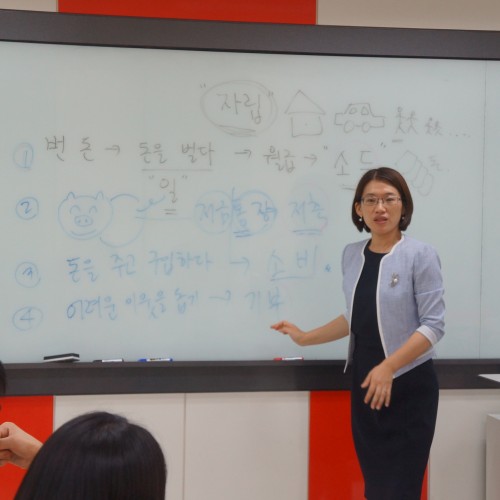 "자립"
① 번 돈 → 돈을 벌다 → 월급 → "소득"
"일"
② 저금통 저축
③ 돈을 주고 구입하다 → 소비.
④ 어려운 이웃을 돕기 → 기부